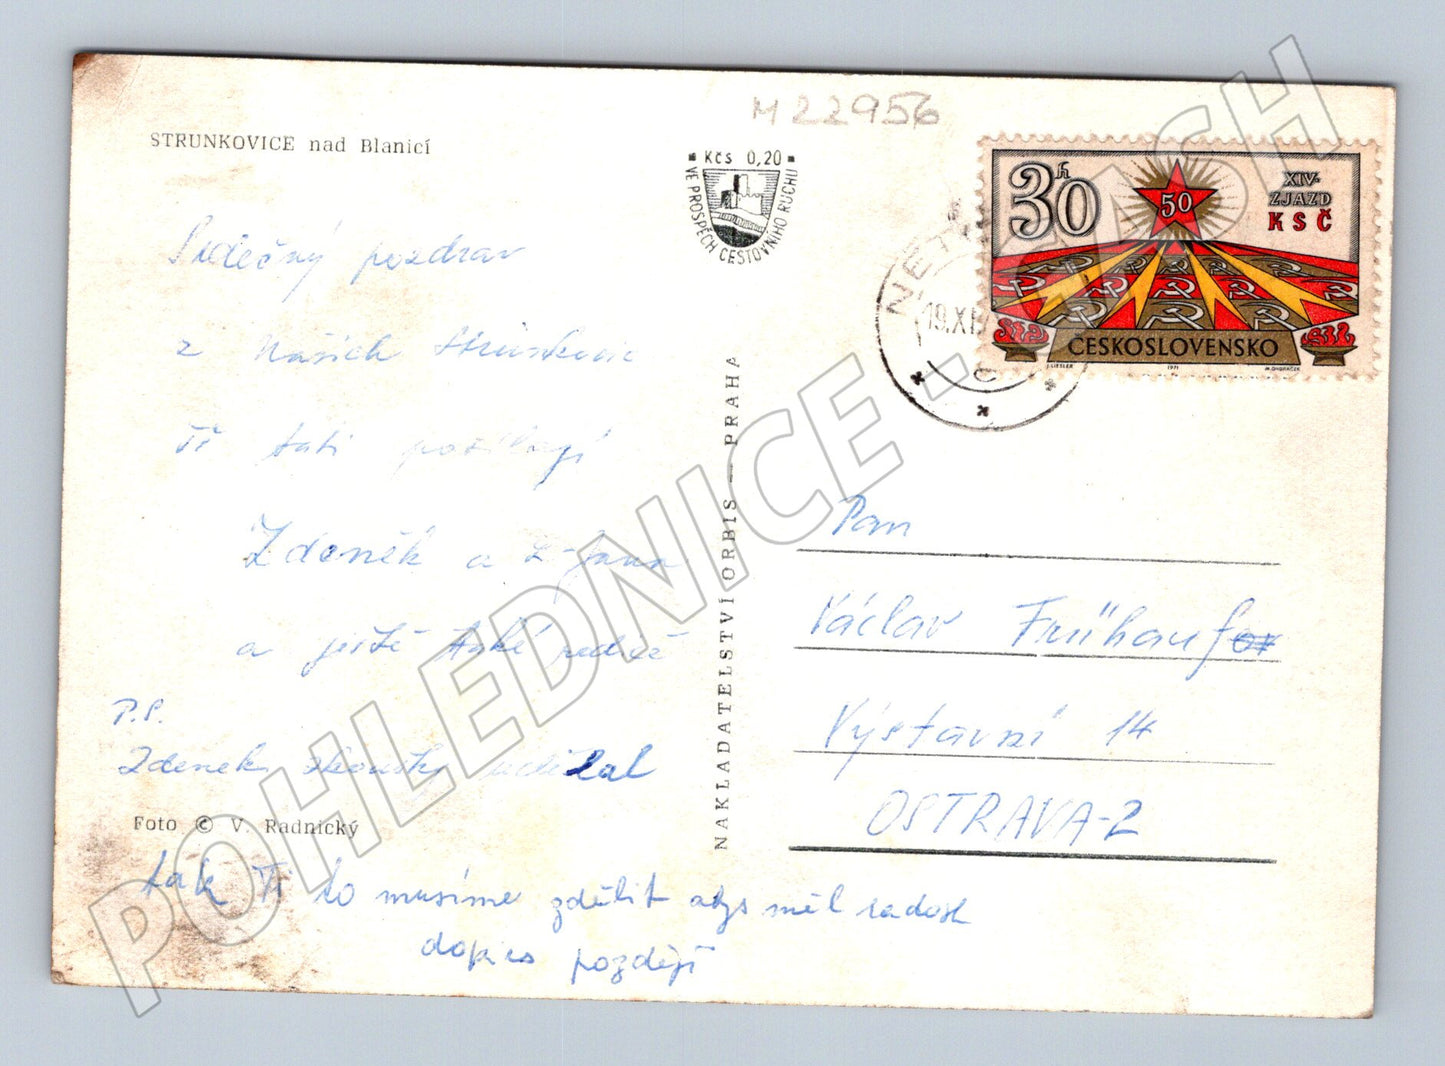 M 22956
STRUNKOVICE nad Blanicí
Kčs 0,20
VE PROSPĚCH CESTOVNÍHO RUCHU
30h
50
XIV.
ZJAZD
KSČ
ČESKOSLOVENSKO
J. LIESLER 1971
NET
19.XI
c
Srdečný pozdrav
z našich Strunkovic
Ti tati posílají
Zdeněk a
a ještě také
P.S.
Zdenek zkoušky udělal
Foto © V. Radnický
tak Ti to musíme zdělit abys měl radost
dopis později
NAKLADATELSTVÍ ORBIS — PRAHA
Pan
Václav Frühauf
Výstavní 14
OSTRAVA-2
POHLEDNICE - CASH